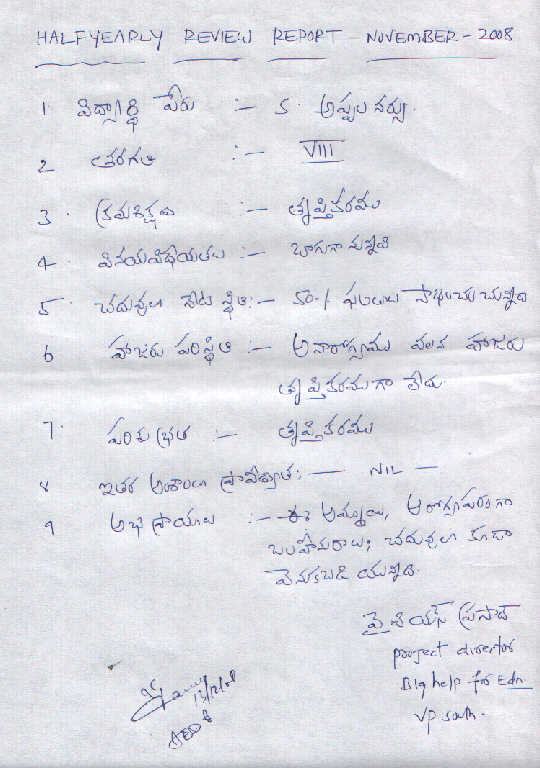 HALF YEARLY REVIEW REPORT - NOVEMBER - 2008
1 విద్యార్థి పేరు :- S. అప్పల నర్సు.
2 తరగతి :- VIII
3. క్రమశిక్షణ :- తృప్తికరము
4. వినయవిధేయతలు :- బాగుగా నున్నవి
5. చదువులో తేట స్థితి :- 50% ఫలితాలు సాధించుచున్నది
6 హాజరు పరిస్థితి :- అనారోగ్యము వలన హాజరు
తృప్తికరముగా లేదు.
7. పరిశుభ్రత :- తృప్తికరము
8 ఇతర అంశాలలో ప్రావీణ్యత :- NIL -
9 అభిప్రాయాలు :- ఈ అమ్మాయి, ఆరోగ్యపరంగా
బలహీనరాలు; చదువులో కూడా
వెనుకబడి యున్నది.
వై పి యస్ ప్రసాద్
project director
Big help for Edn.
VP south.
13/12/08